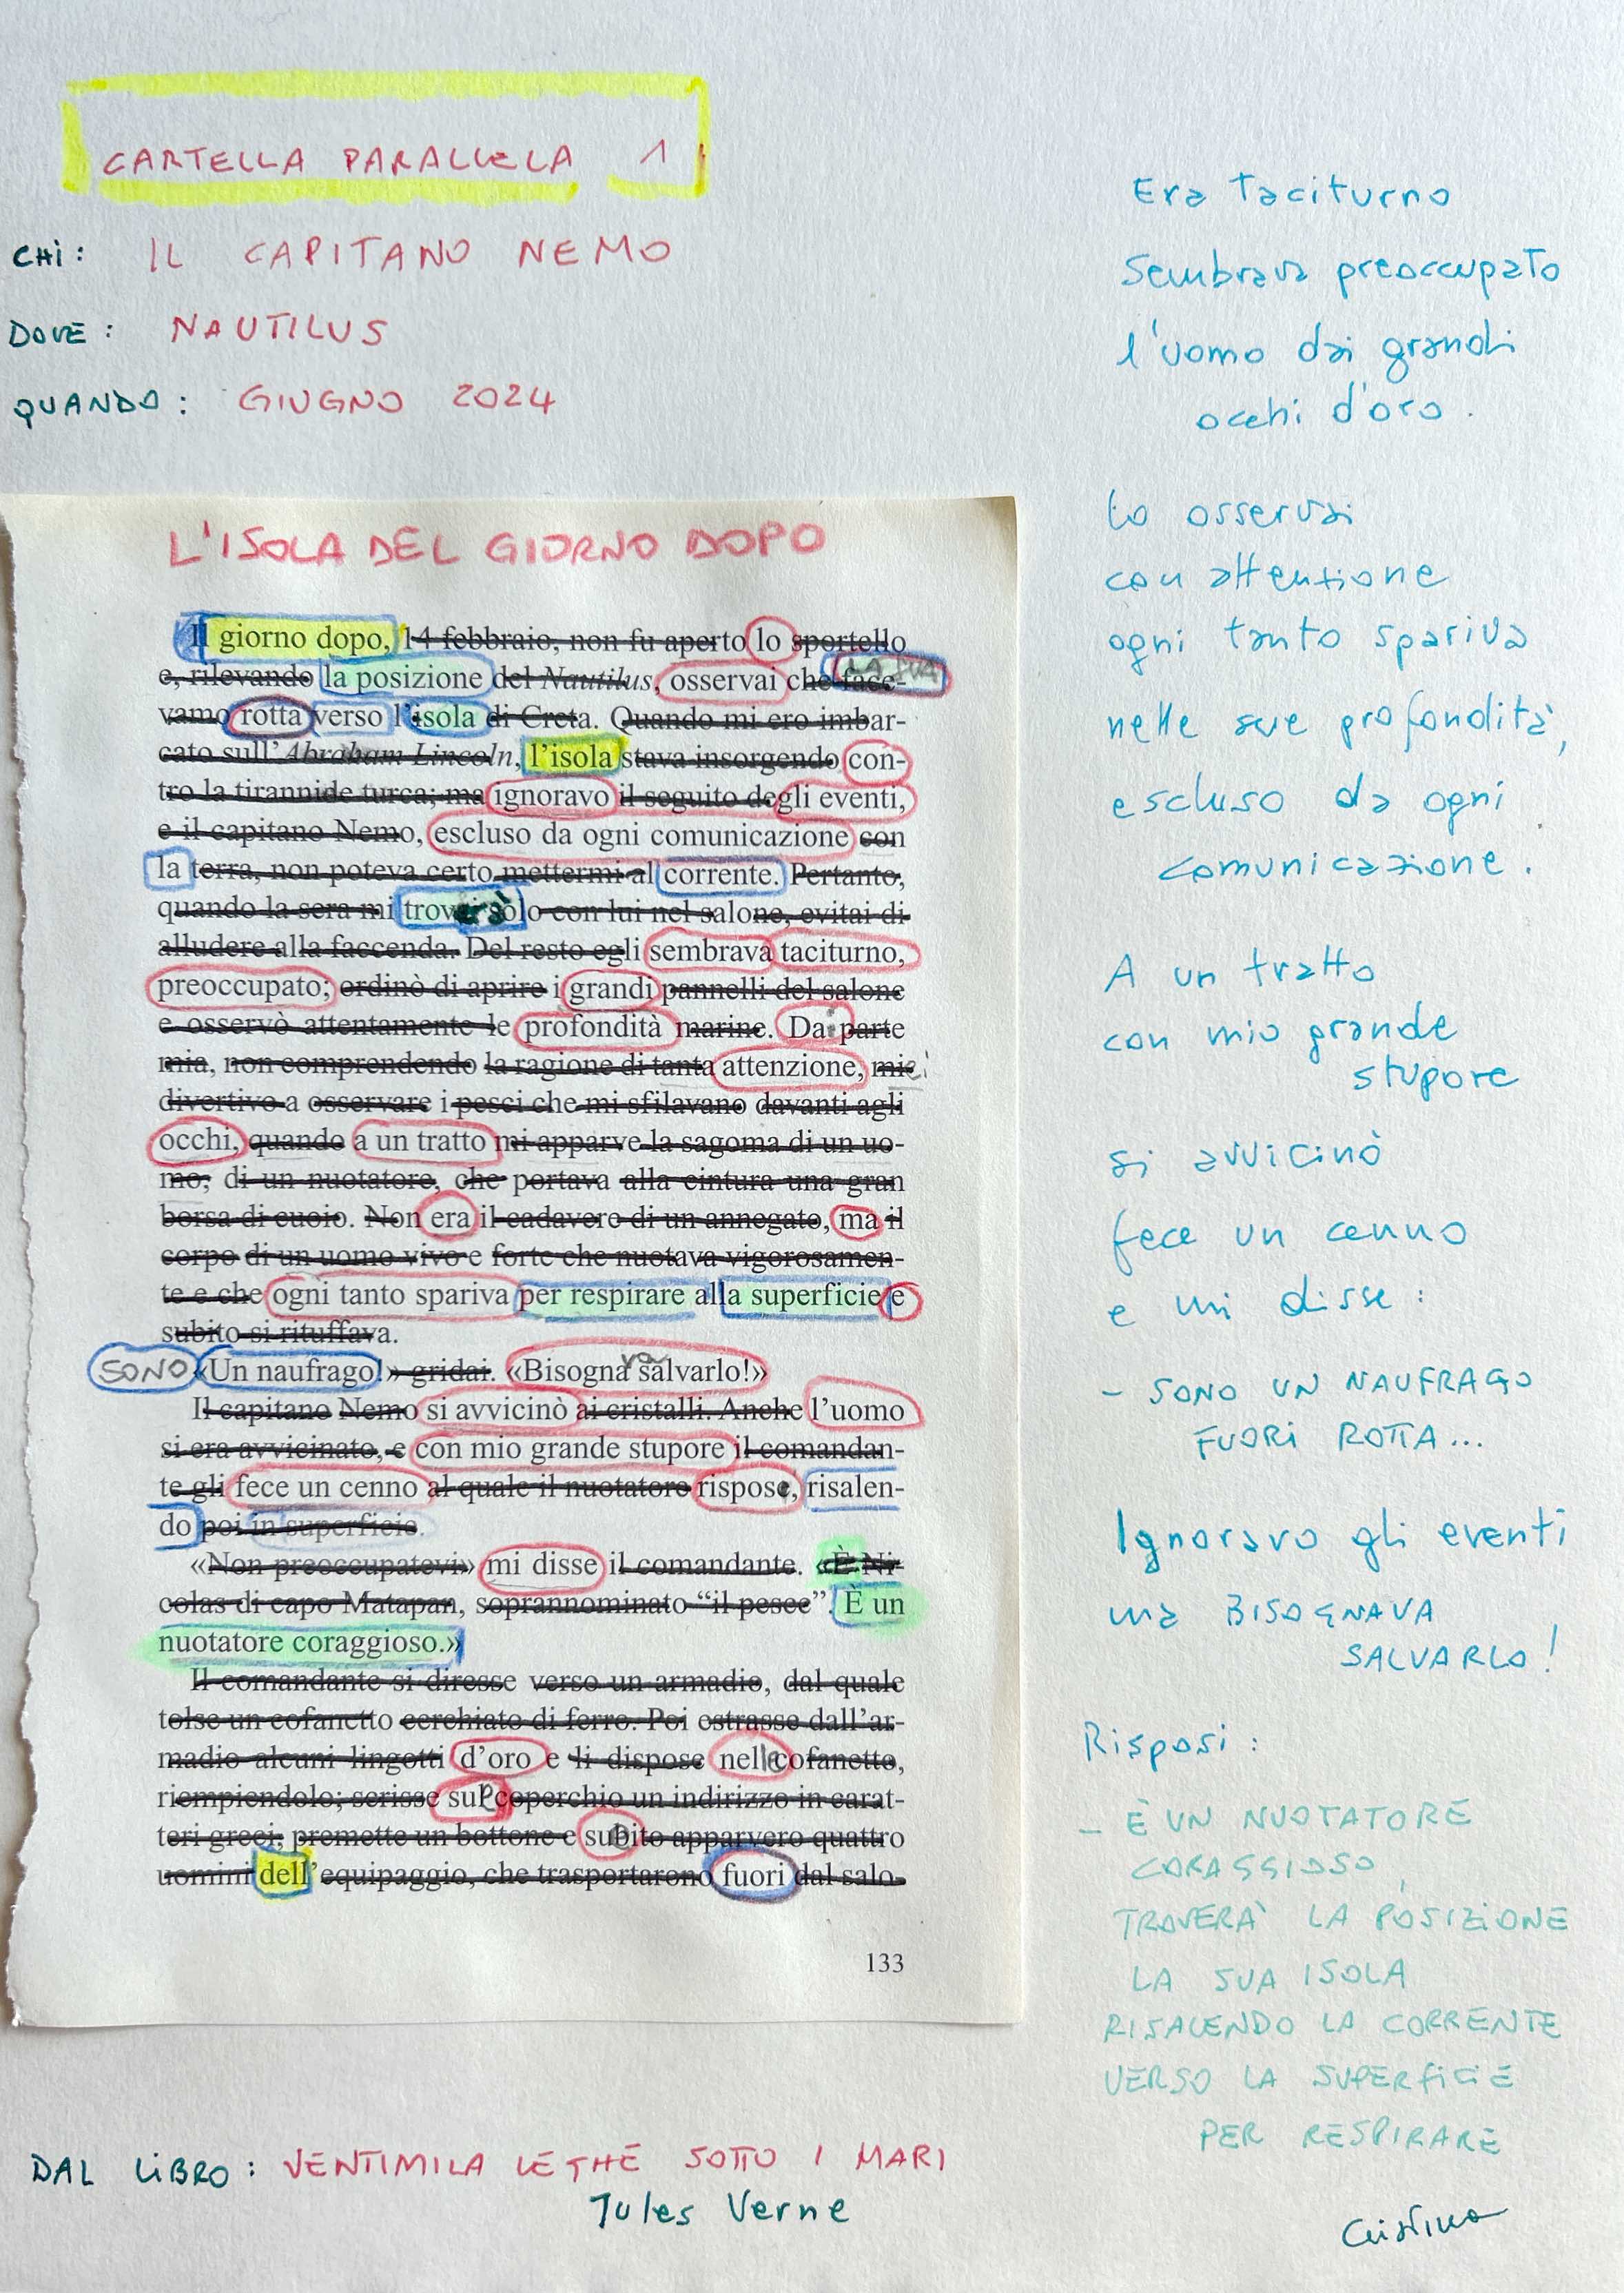 CARTELLA PARALLELA 1
CHI: IL CAPITANO NEMO
DOVE: NAUTILUS
QUANDO: GIUGNO 2024
L'ISOLA DEL GIORNO DOPO
Il giorno dopo, 14 febbraio, non fu aperto lo sportello
e, rilevando la posizione del Nautilus, osservai che face-
LA SUA
vamo rotta verso l'isola di Creta. Quando mi ero imbar-
cato sull'Abraham Lincoln, l'isola stava insorgendo con-
tro la tirannide turca; ma ignoravo il seguito degli eventi,
e il capitano Nemo, escluso da ogni comunicazione con
la terra, non poteva certo mettermi al corrente. Pertanto,
quando la sera mi troverò solo con lui nel salone, evitai di
alludere alla faccenda. Del resto egli sembrava taciturno,
preoccupato; ordinò di aprire i grandi pannelli del salone
e osservò attentamente le profondità marine. Dai parte
mia, non comprendendo la ragione di tanta attenzione, miei
divertivo a osservare i pesci che mi sfilavano davanti agli
occhi, quando a un tratto mi apparve la sagoma di un uo-
mo, di un nuotatore, che portava alla cintura una gran
borsa di cuoio. Non era il cadavere di un annegato, ma il
corpo di un uomo vivo e forte che nuotava vigorosamen-
te e che ogni tanto spariva per respirare alla superficie e
subito si rituffava.
SONO «Un naufrago!» gridai. «Bisognava salvarlo!»
Il capitano Nemo si avvicinò ai cristalli. Anche l'uomo
si era avvicinato, e con mio grande stupore il comandan-
te gli fece un cenno al quale il nuotatore rispose, risalen-
do poi in superficie.
«Non preoccupatevi» mi disse il comandante. «È Ni-
colas di capo Matapan, soprannominato “il pesce”. È un
nuotatore coraggioso.»
Il comandante si diresse verso un armadio, dal quale
tolse un cofanetto cerchiato di ferro. Poi estrasse dall'ar-
madio alcuni lingotti d'oro e li dispose nelle cofanetto,
riempiendolo; scrisse sul coperchio un indirizzo in carat-
teri greci, premette un bottone e subito apparvero quattro
uomini dell'equipaggio, che trasportarono fuori dal salo-
133
DAL LIBRO: VENTIMILA LEGHE SOTTO I MARI
Jules Verne
Era taciturno
Sembrava preoccupato
l'uomo dai grandi
occhi d'oro.
Lo osservai
con attenzione
ogni tanto spariva
nelle sue profondità,
escluso da ogni
comunicazione.
A un tratto
con mio grande
stupore
si avvicinò
fece un cenno
e mi disse:
- SONO UN NAUFRAGO
FUORI ROTTA...
Ignoravo gli eventi
ma BISOGNAVA
SALVARLO!
Risposi:
- È UN NUOTATORE
CORAGGIOSO,
TROVERÀ LA POSIZIONE
LA SUA ISOLA
RISALENDO LA CORRENTE
VERSO LA SUPERFICIE
PER RESPIRARE
Cristina